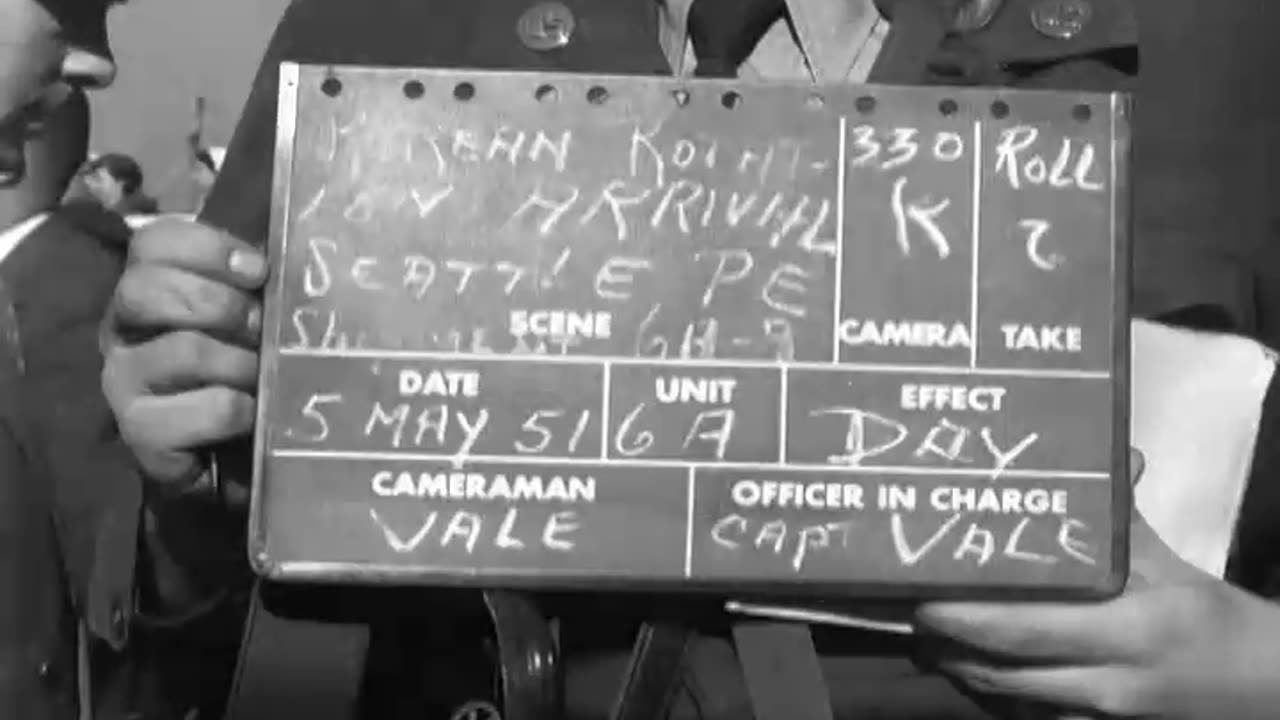 KOREAN ROTAT-
ION ARRIVAL
SEATTLE PE
SHIPMENT 6A-
SCENE
330
K
CAMERA
ROLL
2
TAKE
DATE
5 MAY 51
UNIT
6 A
EFFECT
DAY
CAMERAMAN
VALE
OFFICER IN CHARGE
CAPT VALE